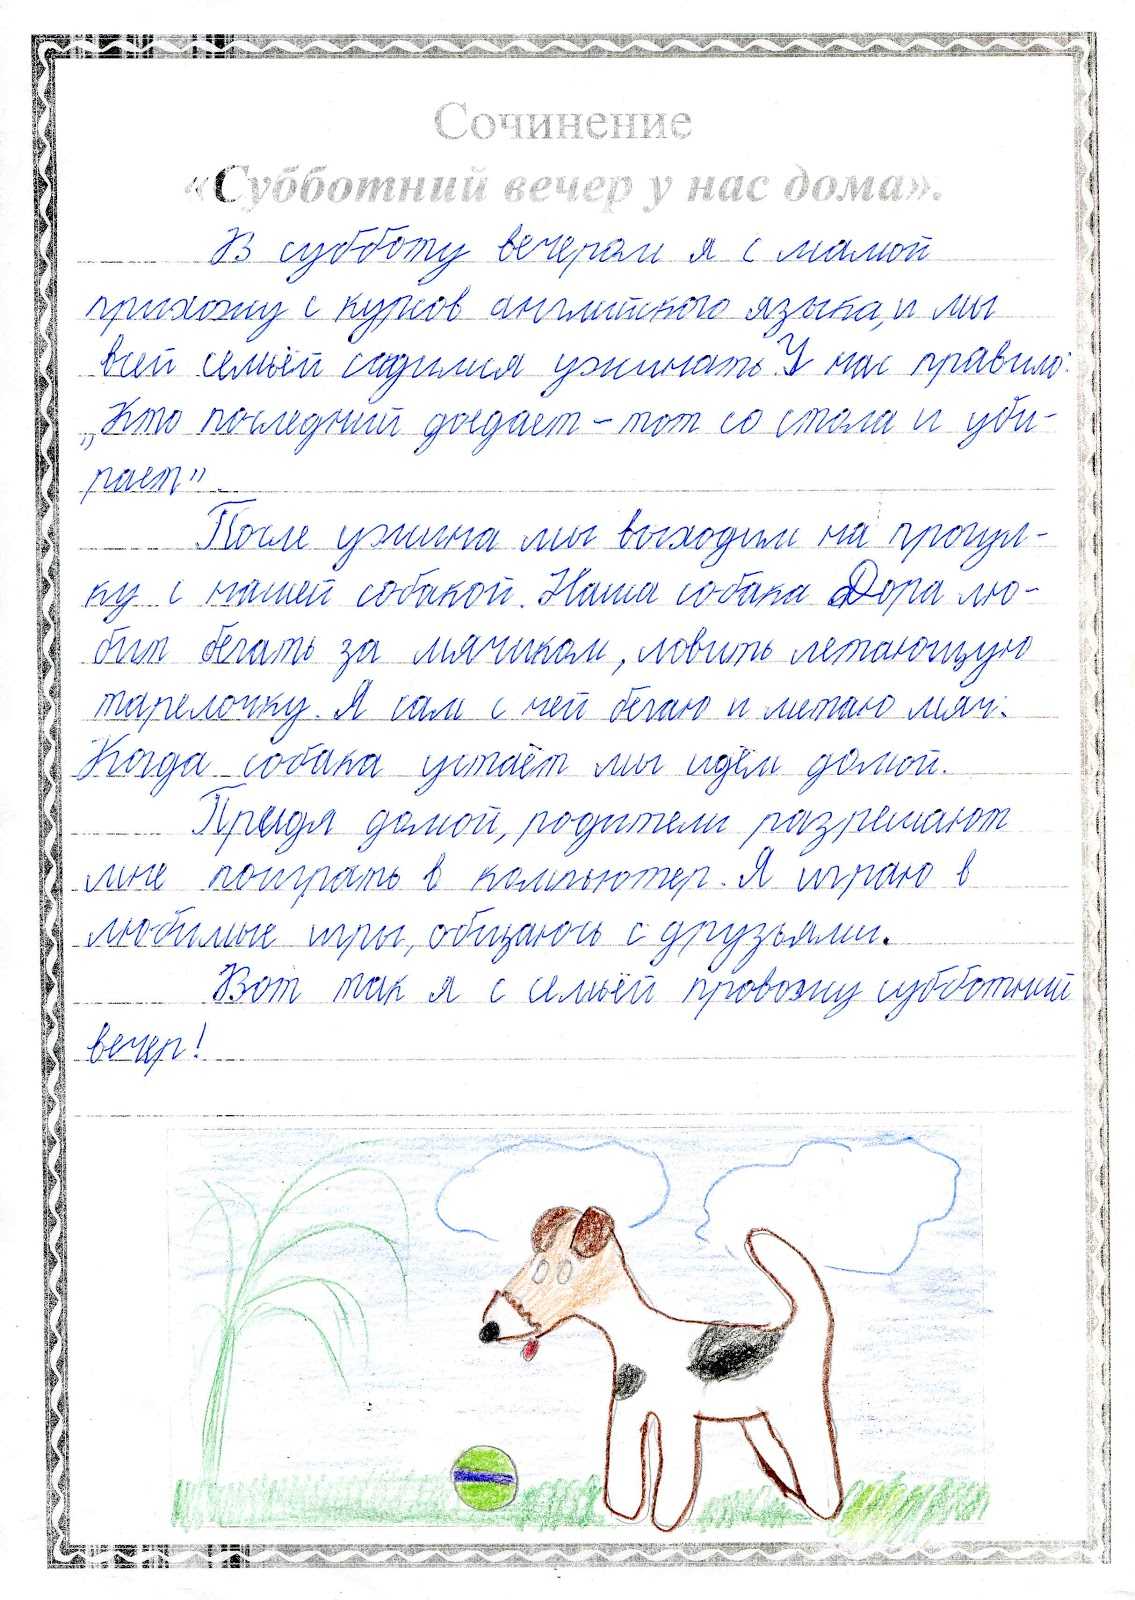 Сочинение
«Субботний вечер у нас дома».
В субботу вечером я с мамой
прихожу с курсов английского языка, и мы
всей семьёй садимся ужинать. У нас правило:
„Кто последний доедает – тот со стола и уби-
рает"
После ужина мы выходим на прогул-
ку с нашей собакой. Наша собака Дора лю-
бит бегать за мячиком, ловить летающую
тарелочку. Я сам с ней бегаю и метаю мяч.
Когда собака устаёт мы идём домой.
Придя домой, родители разрешают
мне поиграть в компьютер. Я играю в
любимые игры, общаюсь с друзьями.
Вот так я с семьёй провожу субботний
вечер!